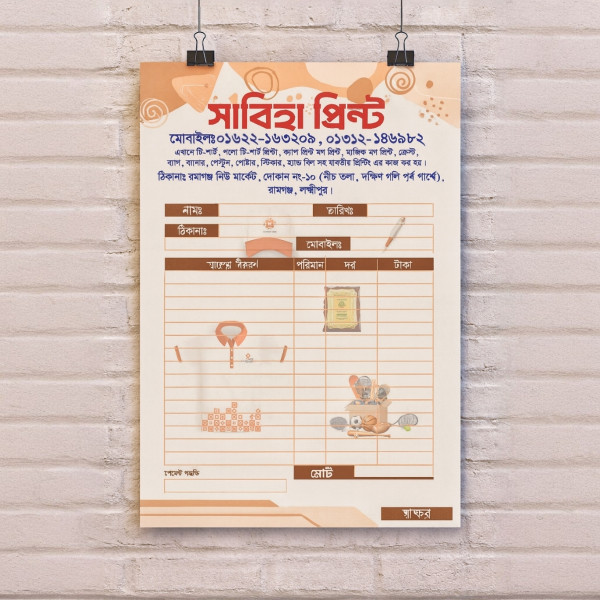 সাবিহা প্রিন্ট
মোবাইলঃ০১৬২২-১৬৩২০৯ , ০১৩১২-১৪৬৯৮২
এখানে টি-শার্ট, পলো টি-শার্ট প্রিন্টা, ক্যাপ প্রিন্ট মগ প্রিন্ট, ম্যজিক মগ প্রিন্ট, ক্রেস্ট,
ব্যাগ, ব্যানার, পেস্টুন, পোষ্টার, স্টিকার, হ্যান্ড বিল সহ যাবতীয় প্রিন্টিং এর কাজ কর হয়।
ঠিকানাঃ রমাগঞ্জ নিউ মার্কেট, দোকান নং-১০ (নীচ তলা, দক্ষিণ গলি পূর্ব পার্শ্বে),
রামগঞ্জ, লক্ষীপুর।
নামঃ তারিখঃ
ঠিকানাঃ
মোবাইলঃ
বিবরণ পরিমান দর টাকা
পেমেন্ট পদ্ধতি মোট
স্বাক্ষর